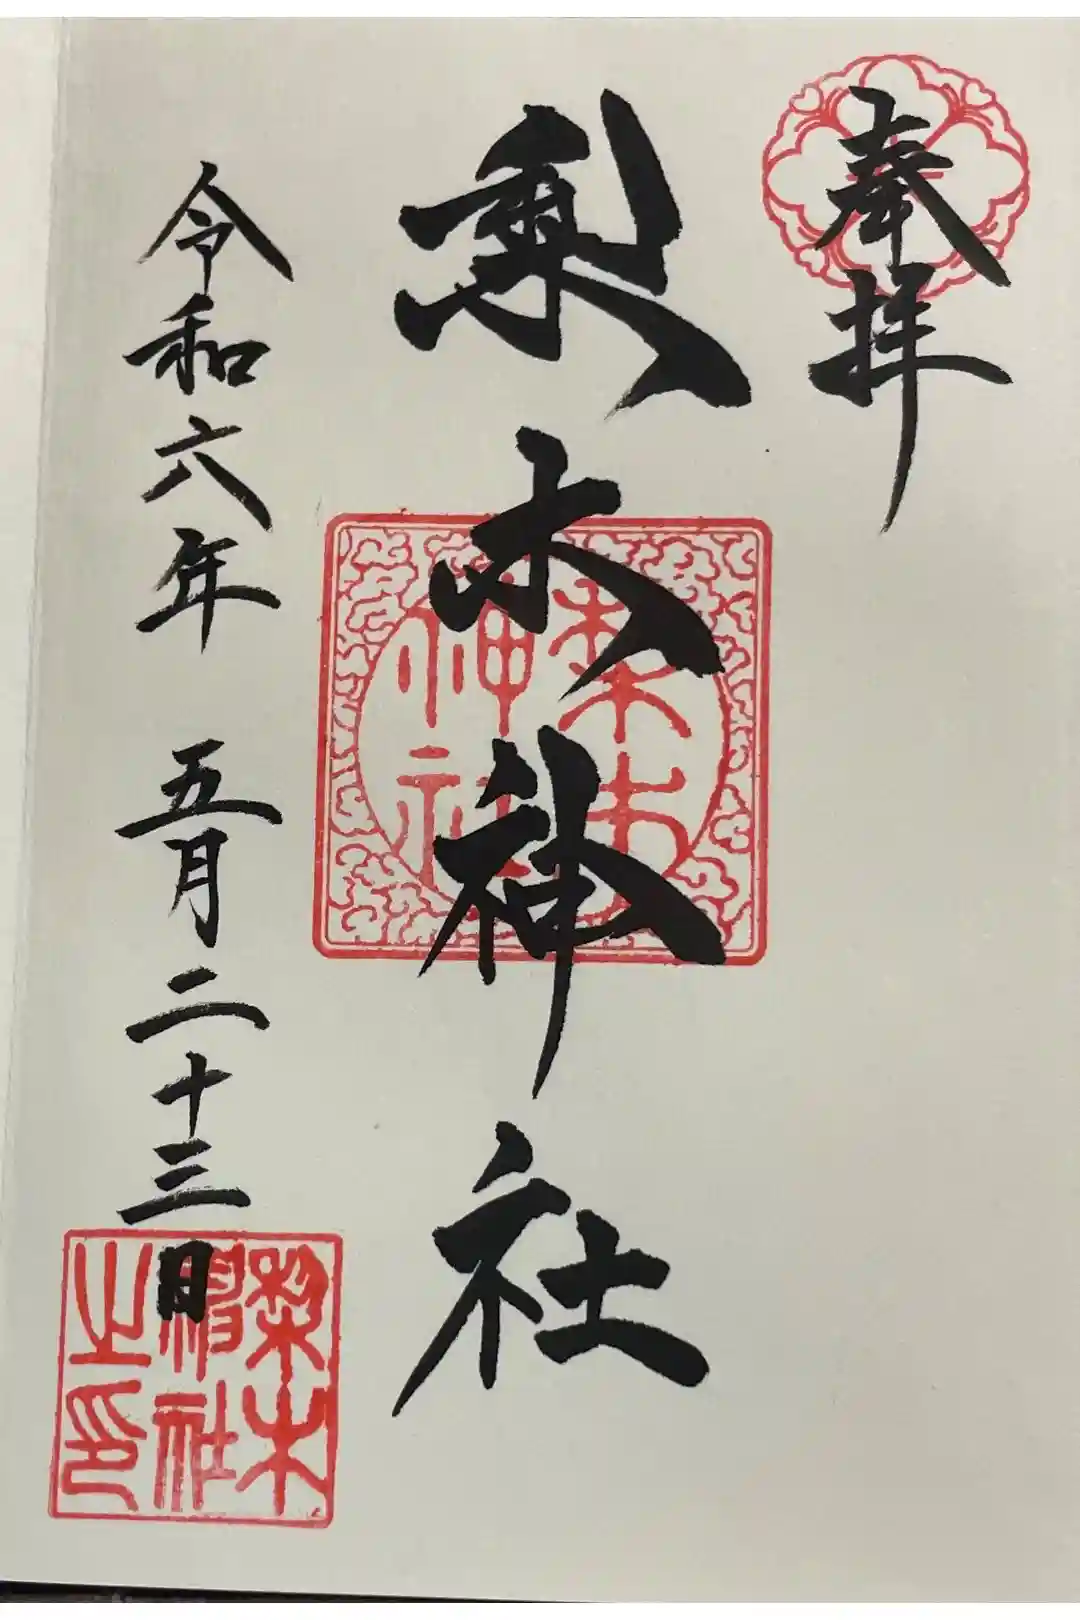 奉拝
梨木神社
令和六年 五月二十三日
梨木
神社
梨木
神社
之印